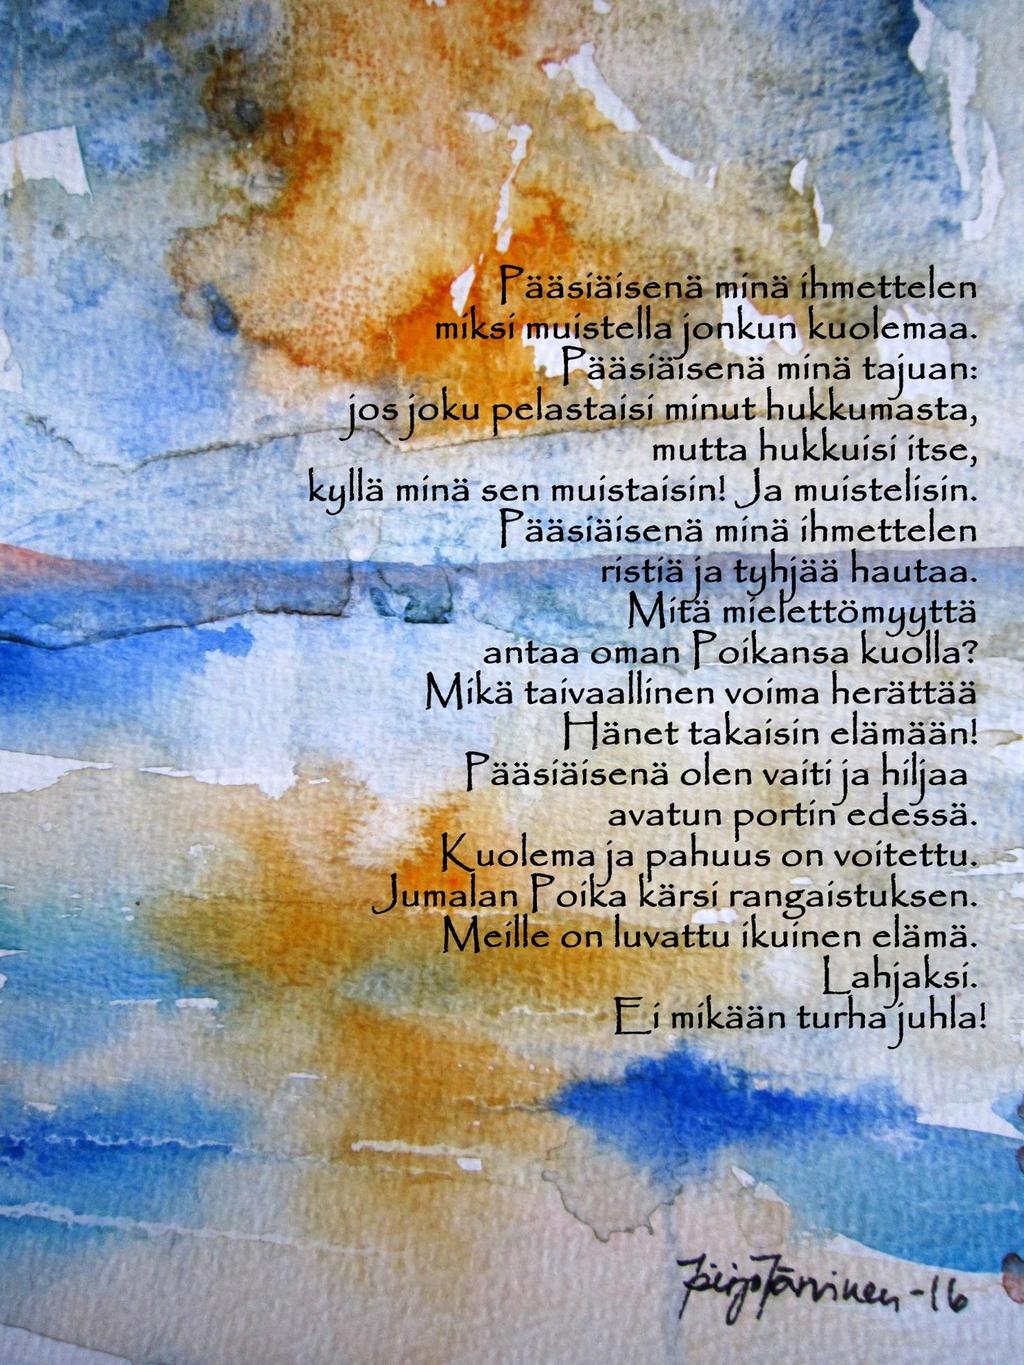 Pääsiäisenä minä ihmettelen
miksi muistella jonkun kuolemaa.
Pääsiäisenä minä tajuan:
jos joku pelastaisi minut hukkumasta,
mutta hukkuisi itse,
kyllä minä sen muistaisin! Ja muistelisin.
Pääsiäisenä minä ihmettelen
ristiä ja tyhjää hautaa.
Mitä mielettömyyttä
antaa oman Poikansa kuolla?
Mikä taivaallinen voima herättää
Hänet takaisin elämään!
Pääsiäisenä olen vaiti ja hiljaa
avatun portin edessä.
Kuolema ja pahuus on voitettu.
Jumalan Poika kärsi rangaistuksen.
Meille on luvattu ikuinen elämä.
Lahjaksi.
Ei mikään turha juhla!
Järvinen -16